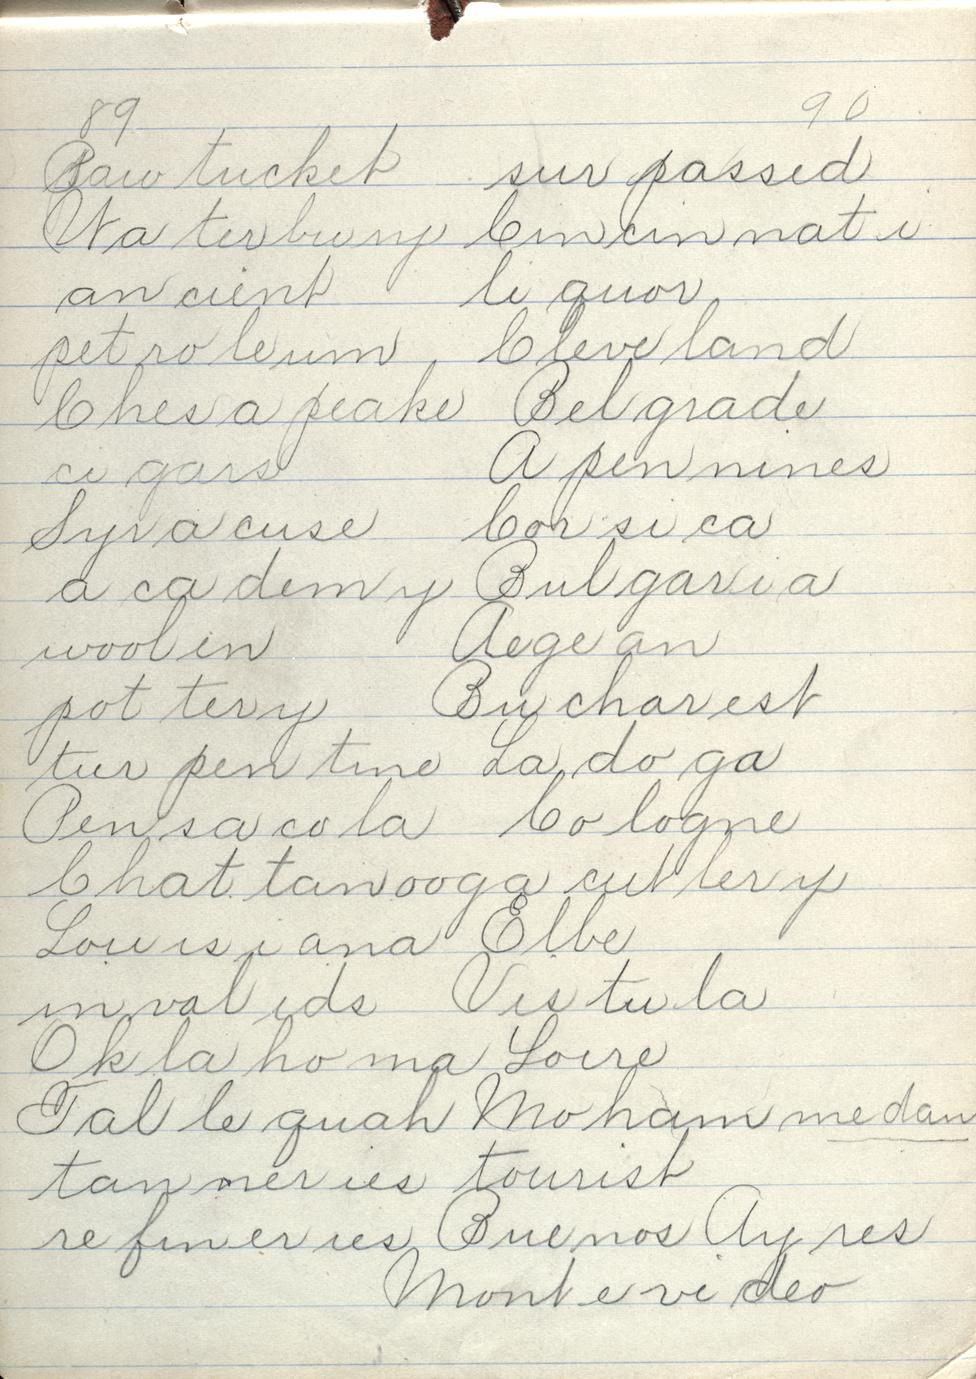 89 90
Paw tucket sur passed
Wa ter bury Cin cin nat i
an cient li quor
pet ro le um Cleve land
Ches a peake Bel grade
ci gars A pen nines
Syr a cuse Cor si ca
a ca dem y Bul gar i a
wool en Aege an
pot ter y Bu char est
tur pen tine La do ga
Pen sa co la Co logne
Chat tan ooga cut ler y
Lou is i ana Elbe
in val ids Vis tu la
Ok la ho ma Loire
Tal le quah Mo ham me dan
tan ner ies tourist
re fin er ies Buenos Ay res
Mont e vi deo